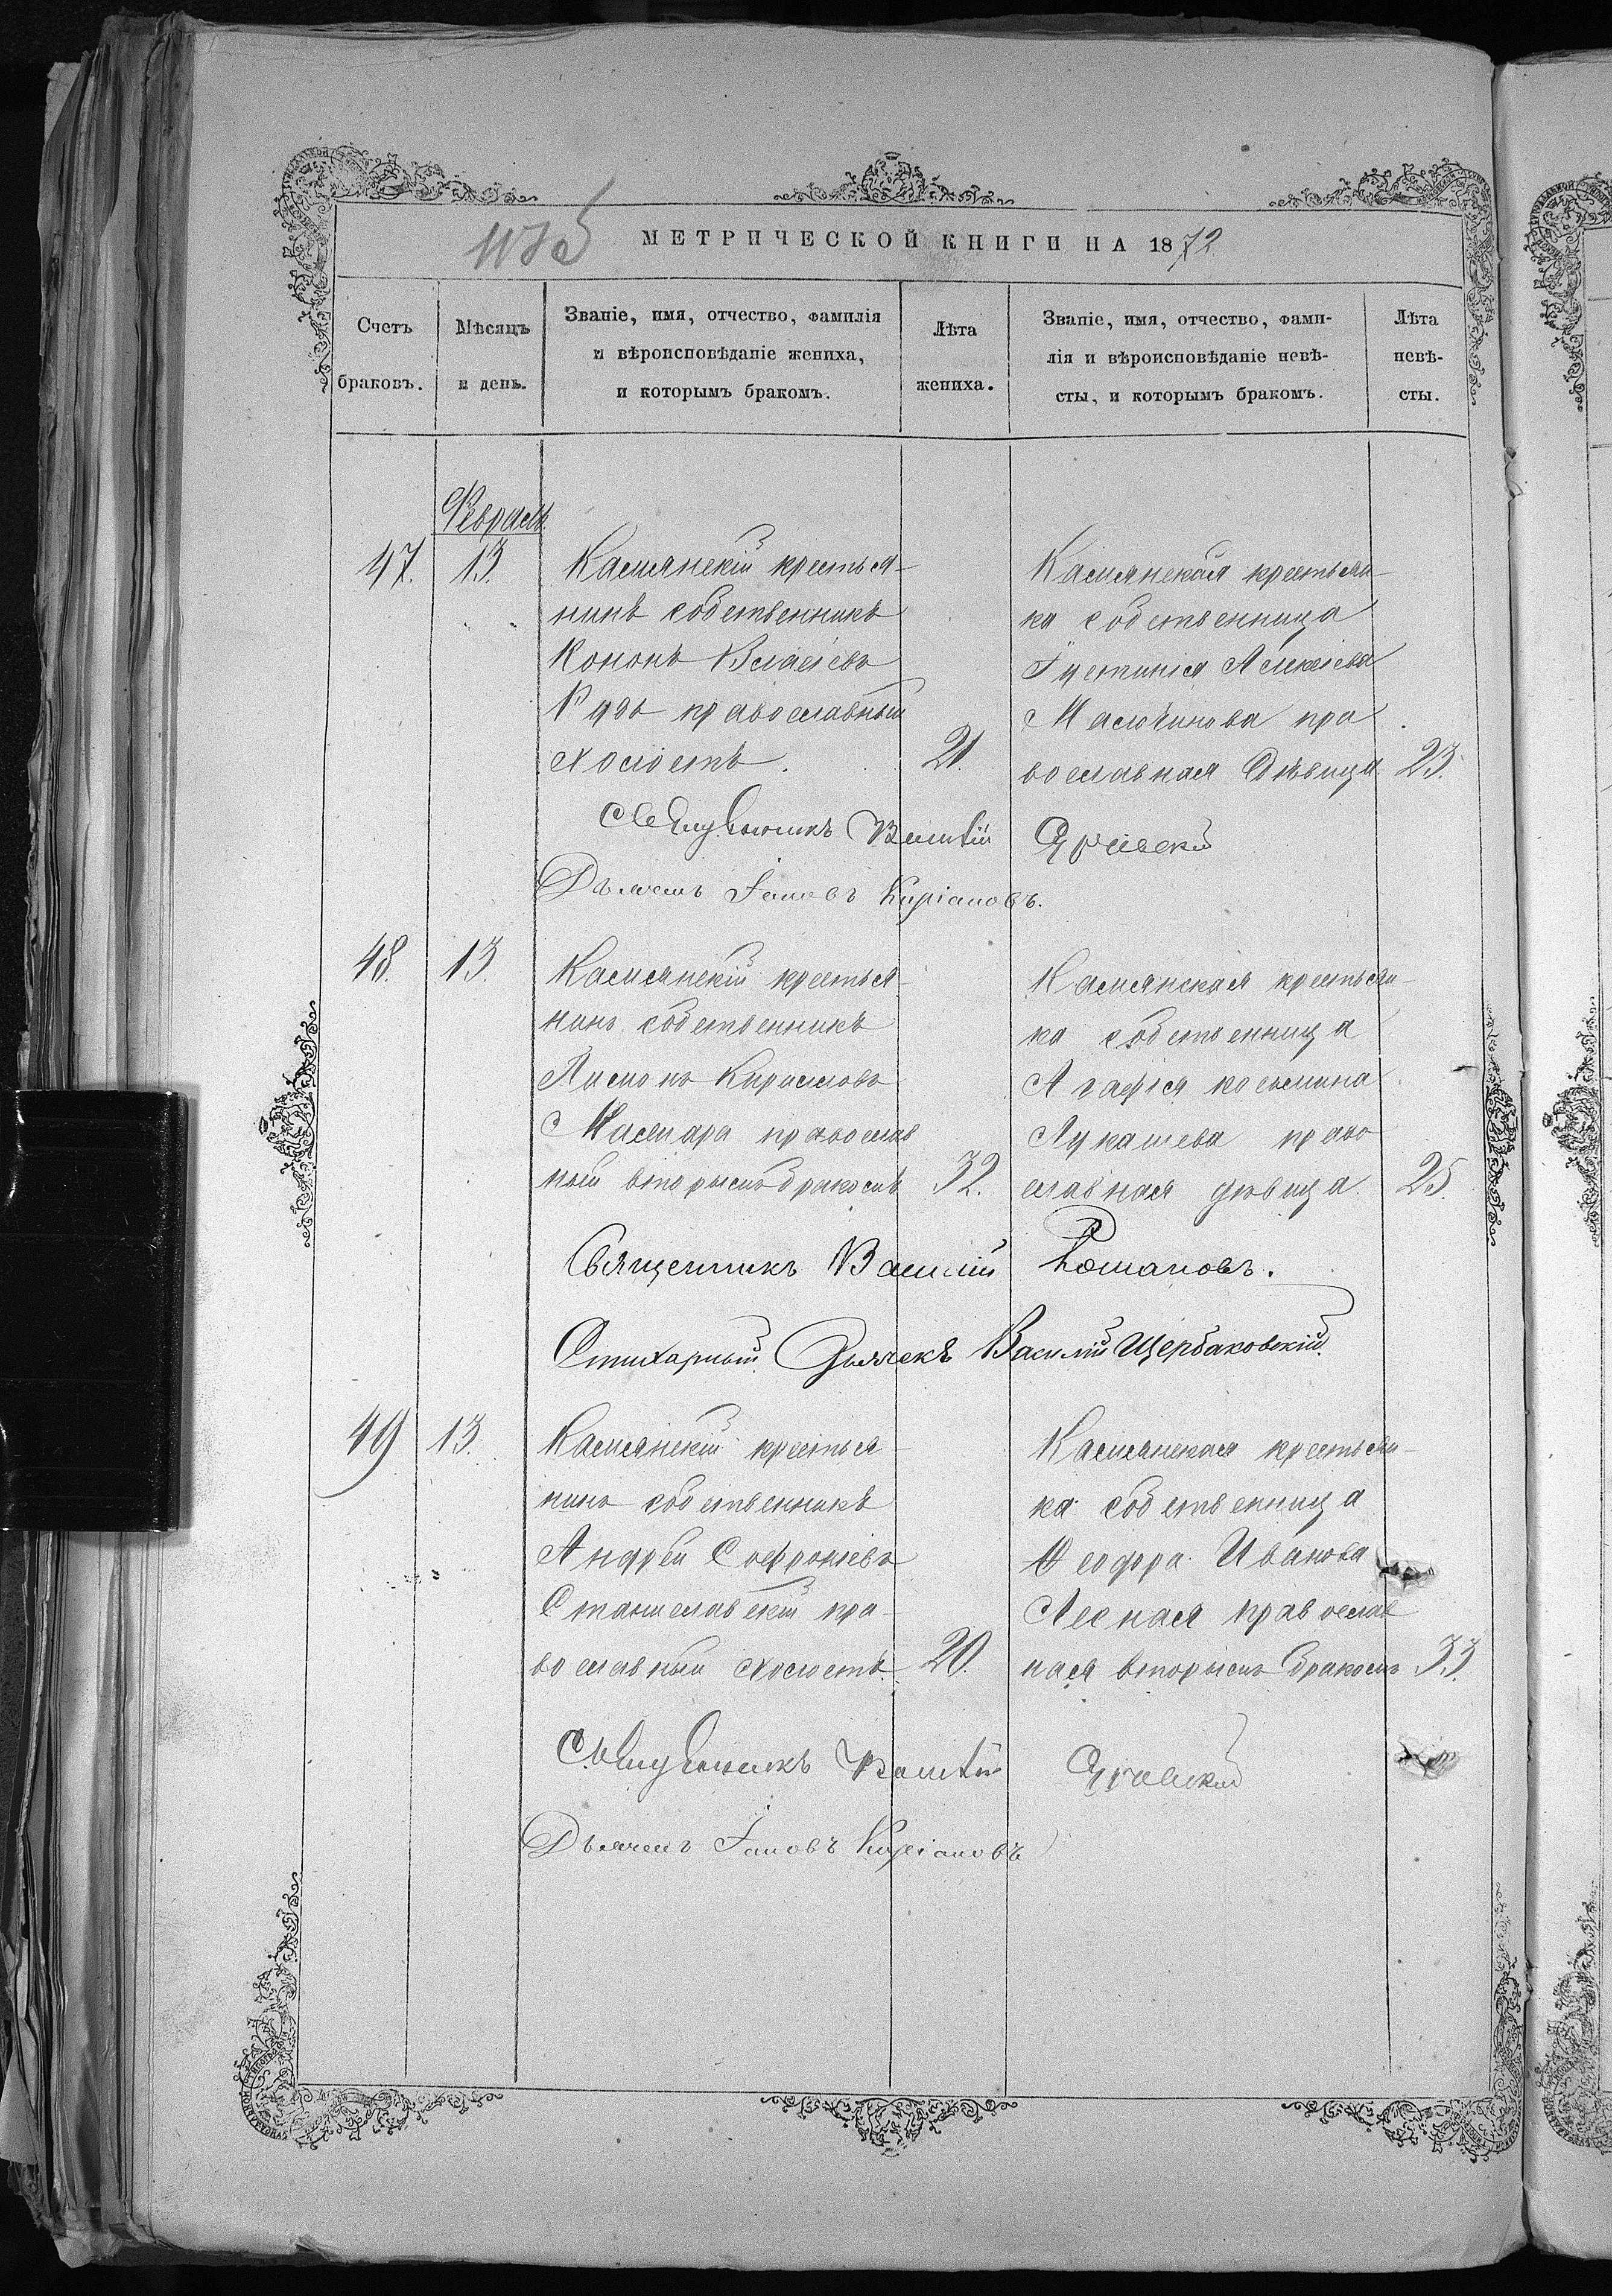 МЕТРИЧЕСКОЙ КНИГИ НА 1872
Счетъ браковъ.
Мѣсяцъ и день.
Званіе, имя, отчество, фамилія
и вѣроисповѣданіе жениха,
и которымъ бракомъ.
Лѣта жениха.
Званіе, имя, отчество, фами-
лія и вѣроисповѣданіе невѣ-
сты, и которымъ бракомъ.
Лѣта невѣ-
сты.
Февраль.
47. 13.
Камянскій крестья-
нинъ собственникъ
Кононъ Власіевъ
православный
холостъ. 21.
Камянская крестьян-
ка собственница
Іустинія Алексіева
пра
вославная дѣвица 23.
Священникъ
Дьячекъ Іаковъ Киріановъ.
48. 13.
Камянскій крестья-
нинъ собственникъ
Кириловъ
православ
ный вторымъ бракомъ 32.
Камянская крестьян-
ка собственница
Агафія Косьмина
Лукашева право
славная дѣвица 25.
Священникъ Василій Романовъ.
Стихарный Дьячекъ Василій Щербаковскій.
49 13.
Камянскій крестья-
нинъ собственникъ
Андрей Софроніевъ
Станиславскій пра-
вославный холостъ. 20.
Камянская крестьян-
ка собственница
Ѳеодора Иванова
Лесная православ
ная вторымъ бракомъ 33.
Священникъ
Дьячекъ Іаковъ Киріановъ